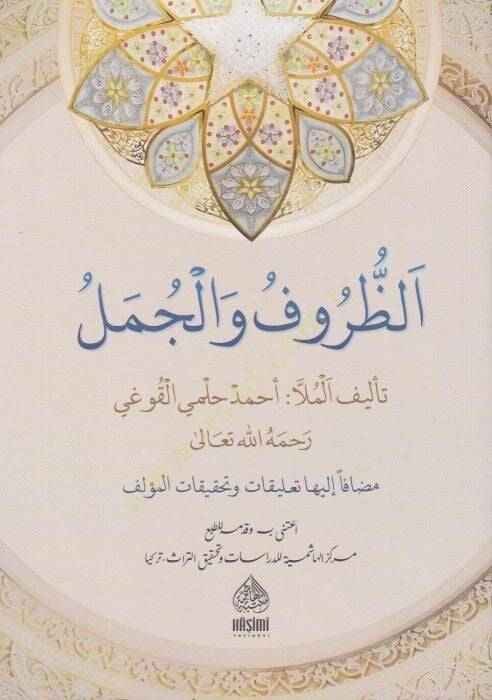 اَلظُّرُوفُ وَالْجُمَلُ
تأليف اَلْمُلاَّ: أحمدْ حلْمي الْقُوغي
رَحمَهُ الله تعَالىٰ
مضافاً إليها تعليقات وتحقيقات المؤلف
اعتنى به وقدمه للطبع
مركز الهاشمية للدراسات وتحقيق التراث - تركيا
HÂŞİMİ
YAYINEVİ